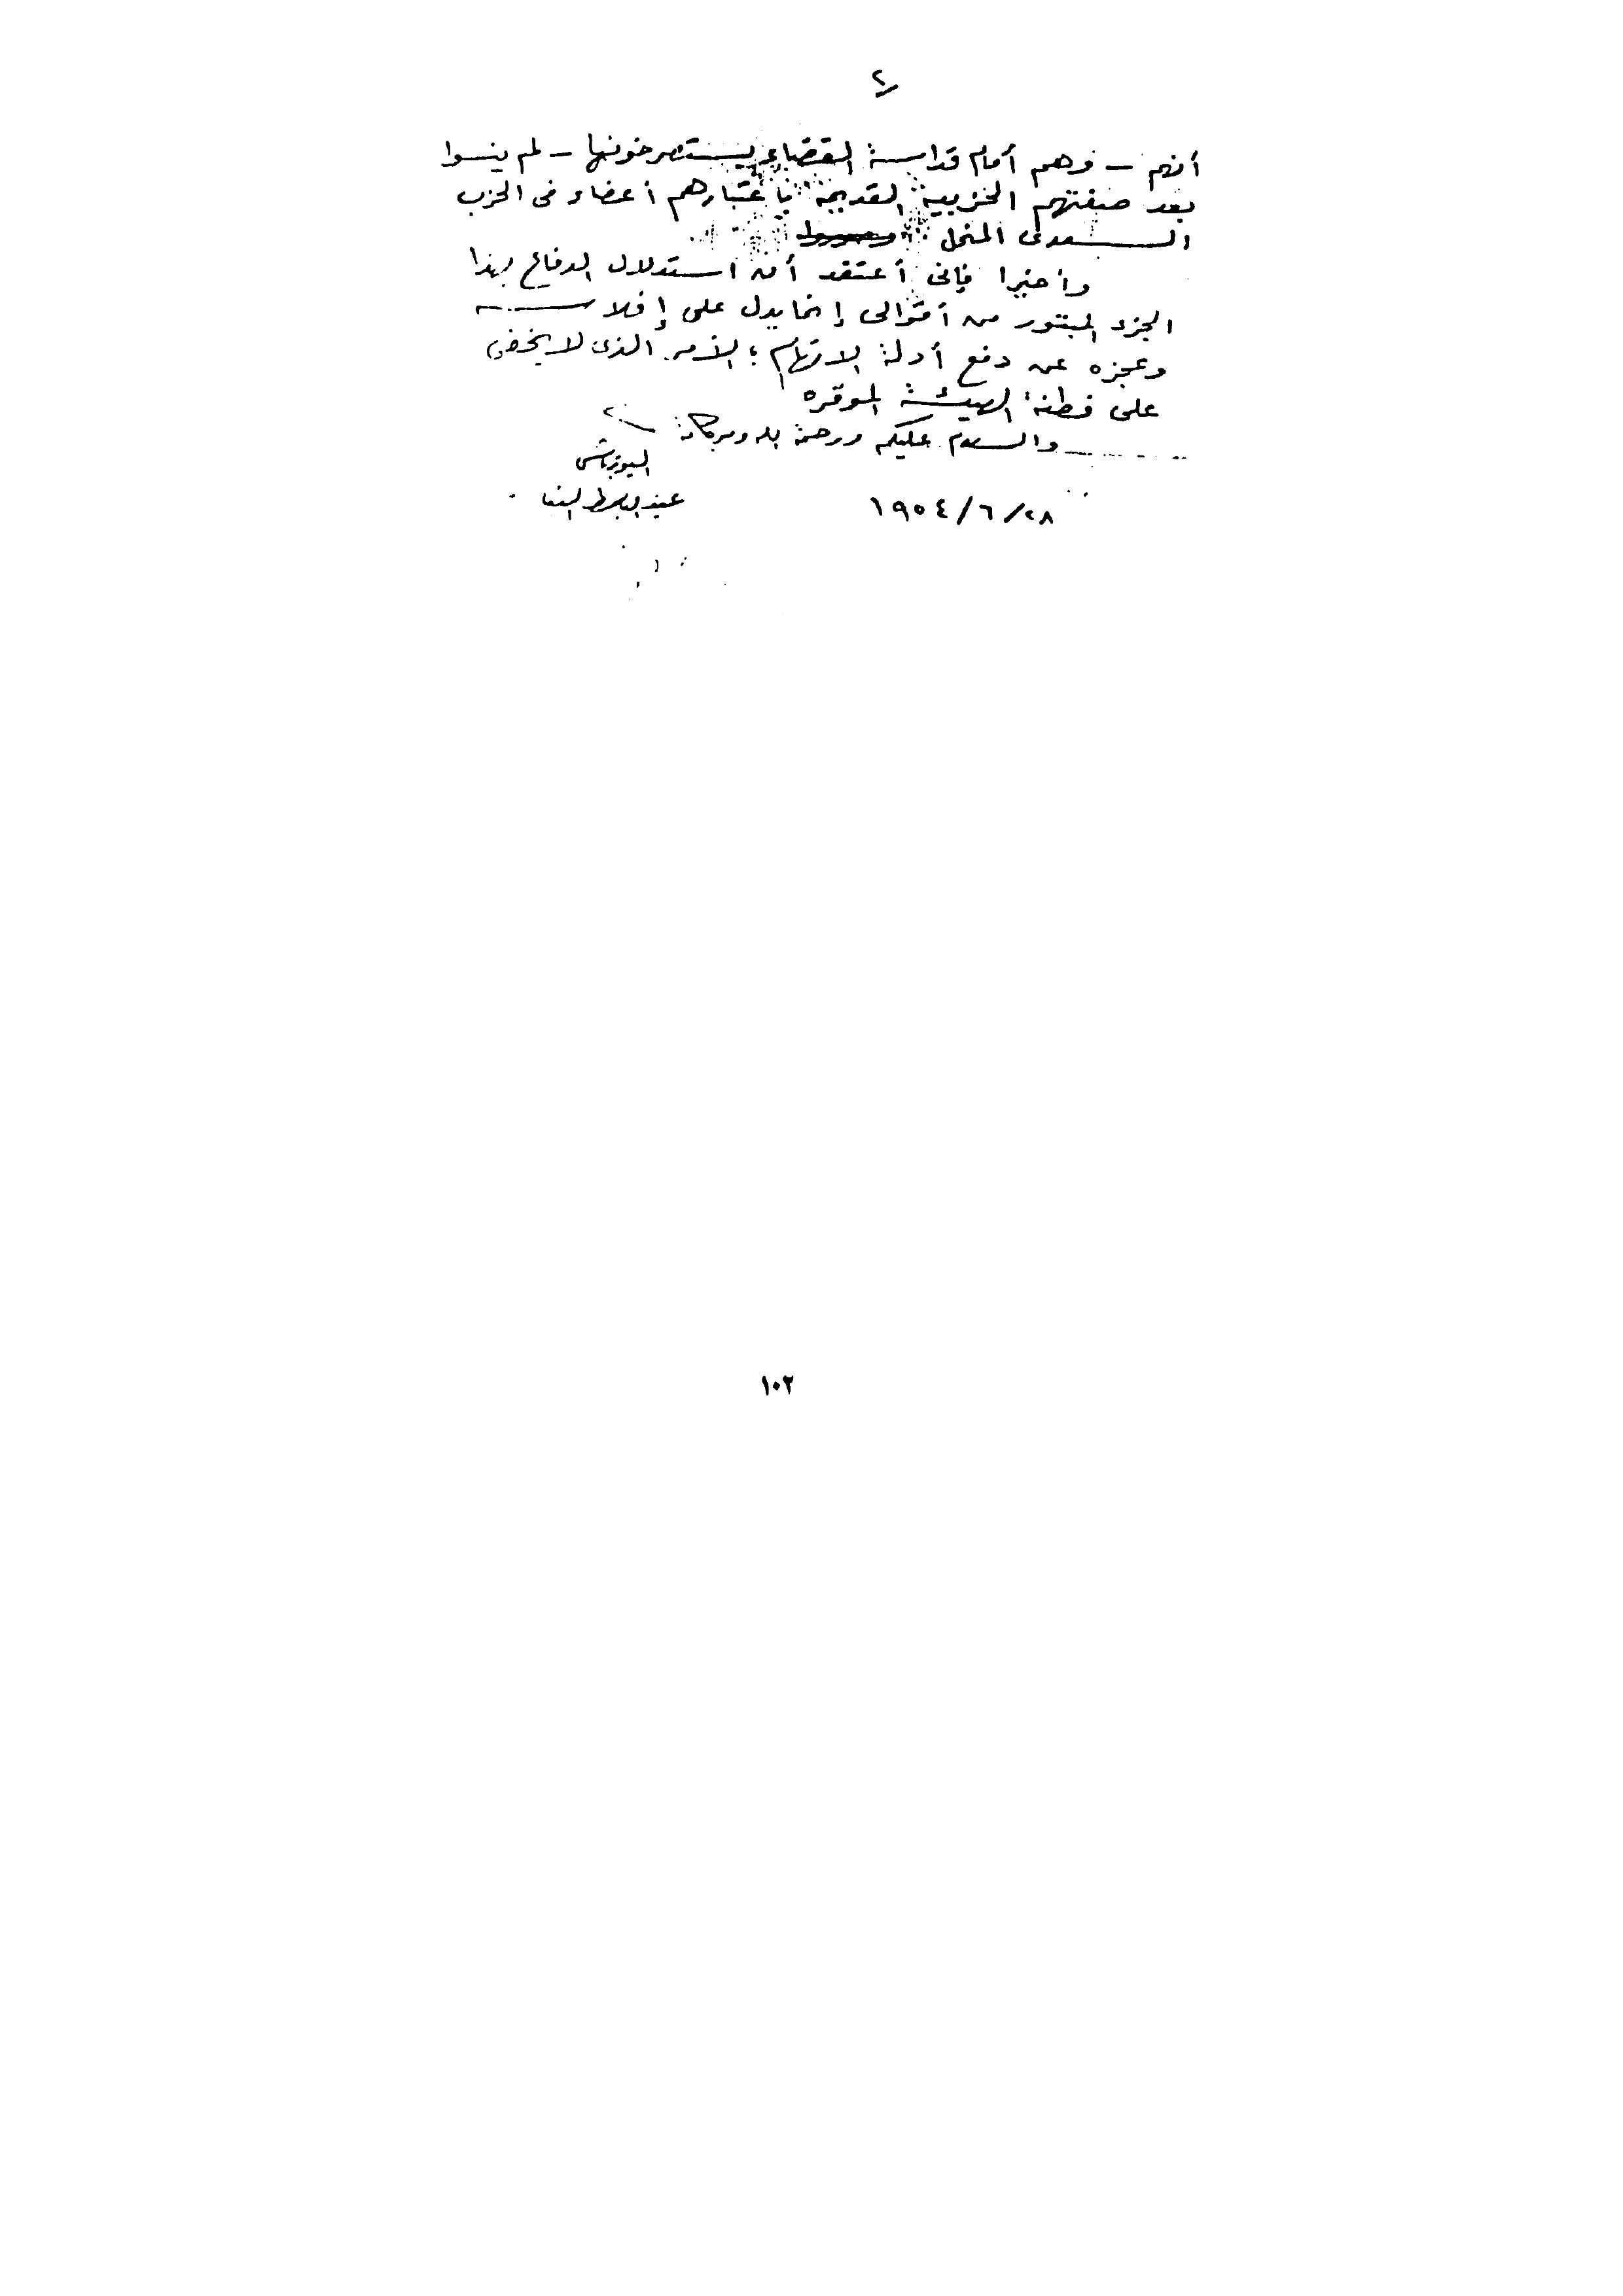 ٢
أنهم – وهم أمام قداسة القضاء يستصرخونها – لم ينسوا
بعد صفتهم الحزبية القديمة باعتبارهم أعضاء فى الحزب
السعدى المنحل
وأخيرا فإنى أعتقد أن استدلال الدفاع بهذا
الجزء المبتور من أقوالى إنما يدل على إفلاسه
وعجزه عن دفع أدلة الاتهام ؛ الأمر الذى لا يخفى
على فطنة الهيئة الموقره
والسلام عليكم ورحمة الله وبركاته
اليوزباشى
عبد الباسط البنا
١٩٥٤/٦/٢٨
١٠٢